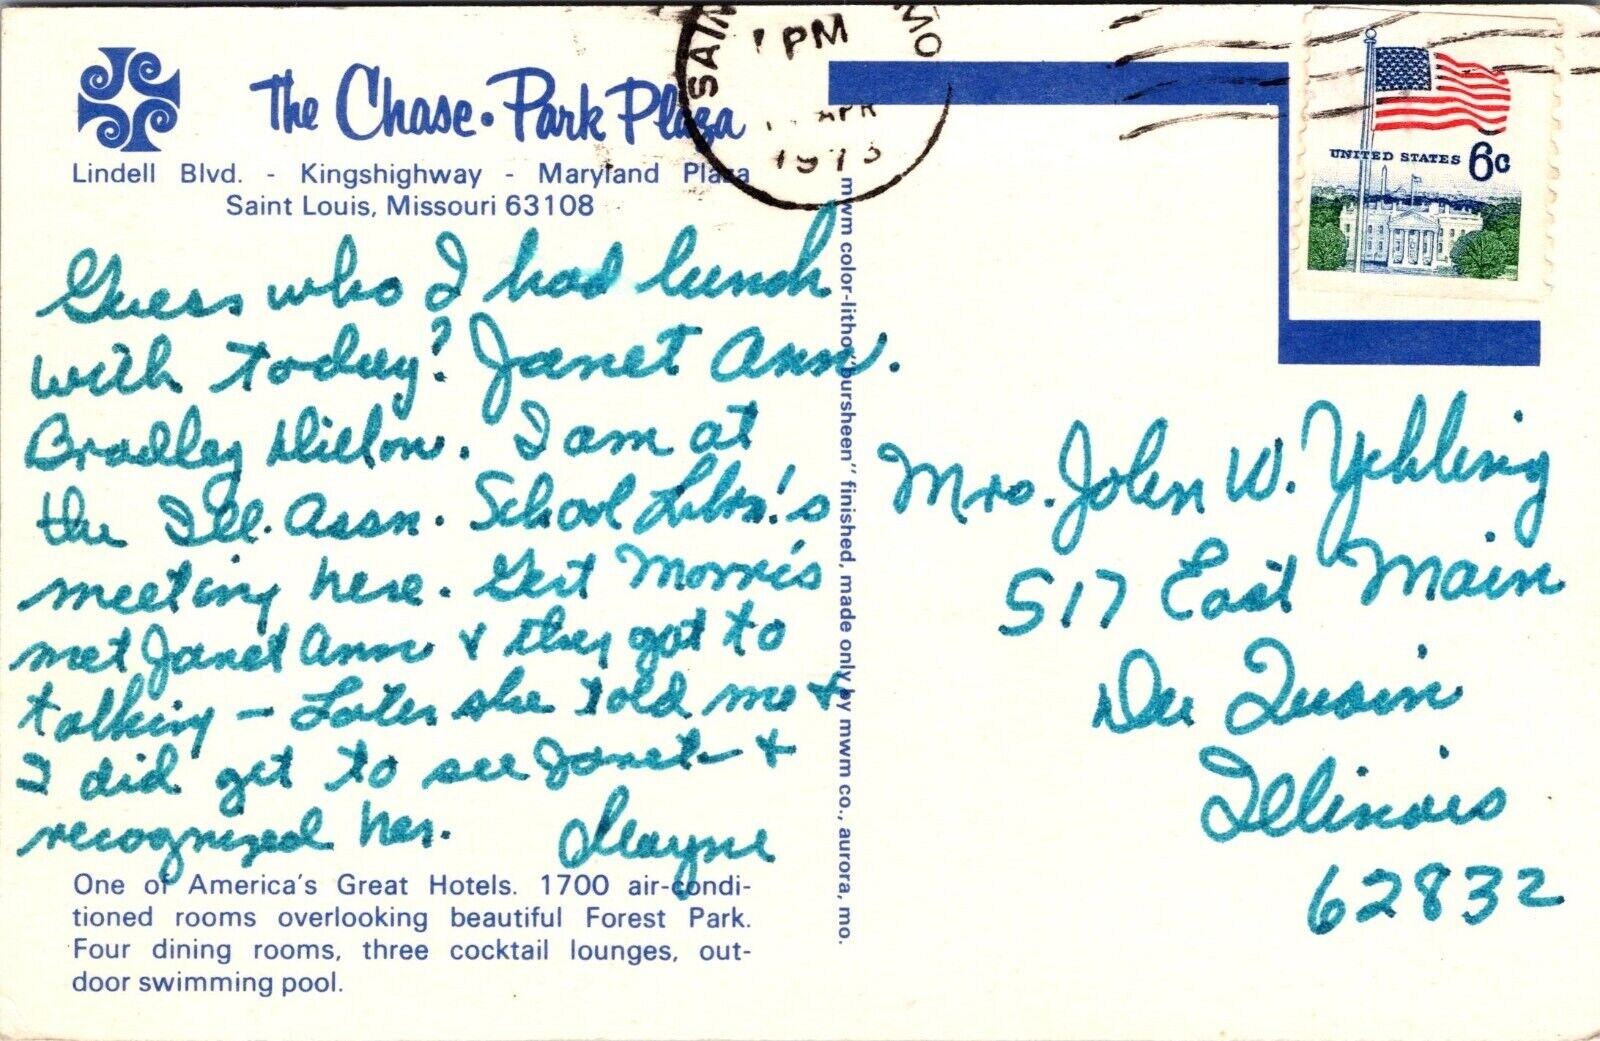 The Chase · Park Plaza
Lindell Blvd. - Kingshighway - Maryland Plaza
Saint Louis, Missouri 63108
Guess who I had lunch
with today? Janet Ann.
Bradley Dillon. I am at
the Ill. Assn. School Libn.'s
meeting here. Gert Morris
met Janet Ann & they got to
talking – Later she told me &
I did get to see Janet &
recognized her. Wayne
One of America's Great Hotels. 1700 air-condi-
tioned rooms overlooking beautiful Forest Park.
Four dining rooms, three cocktail lounges, out-
door swimming pool.
mwm color-litho "bursheen" finished, made only by mwm co., aurora, mo.
SAIN MO
1 PM
APR
1973
UNITED STATES 6c
Mrs. John W. Yehling
517 East Main
Du Quoin
Illinois
62832